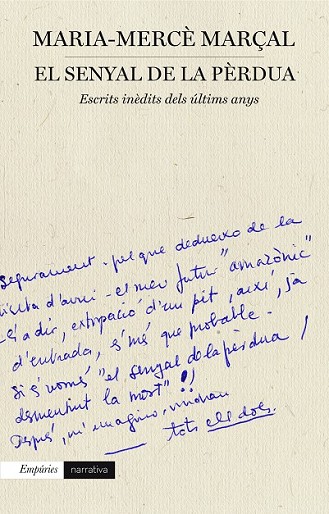 MARIA-MERCÈ MARÇAL
EL SENYAL DE LA PÈRDUA
Escrits inèdits dels últims anys
Segurament - pel que dedueixo de la
visita d'avui - el meu futur "amazònic"
-és a dir, extirpació d'un pit, així, ja
d'entrada, és més que probable.
Si és només "el senyal de la pèrdua /
desmentint la mort"!!
Després, m'imagino, vindran
tots els dols.
Empúries
narrativa